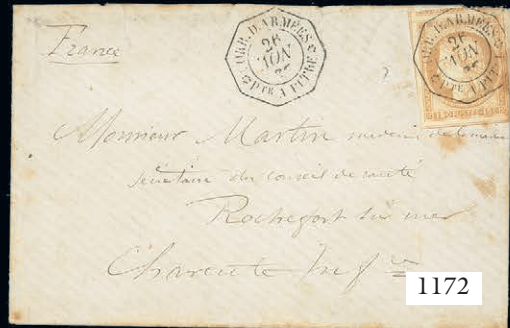 France
CORR. D. ARMÉES
26
JUIN
Pte A PITRE
CORR. D. ARMÉES
26
JUIN
Pte A PITRE
Monsieur Martin médecin de la marine
secrétaire du conseil de santé
Rochefort sur mer
Charente Infre
1172